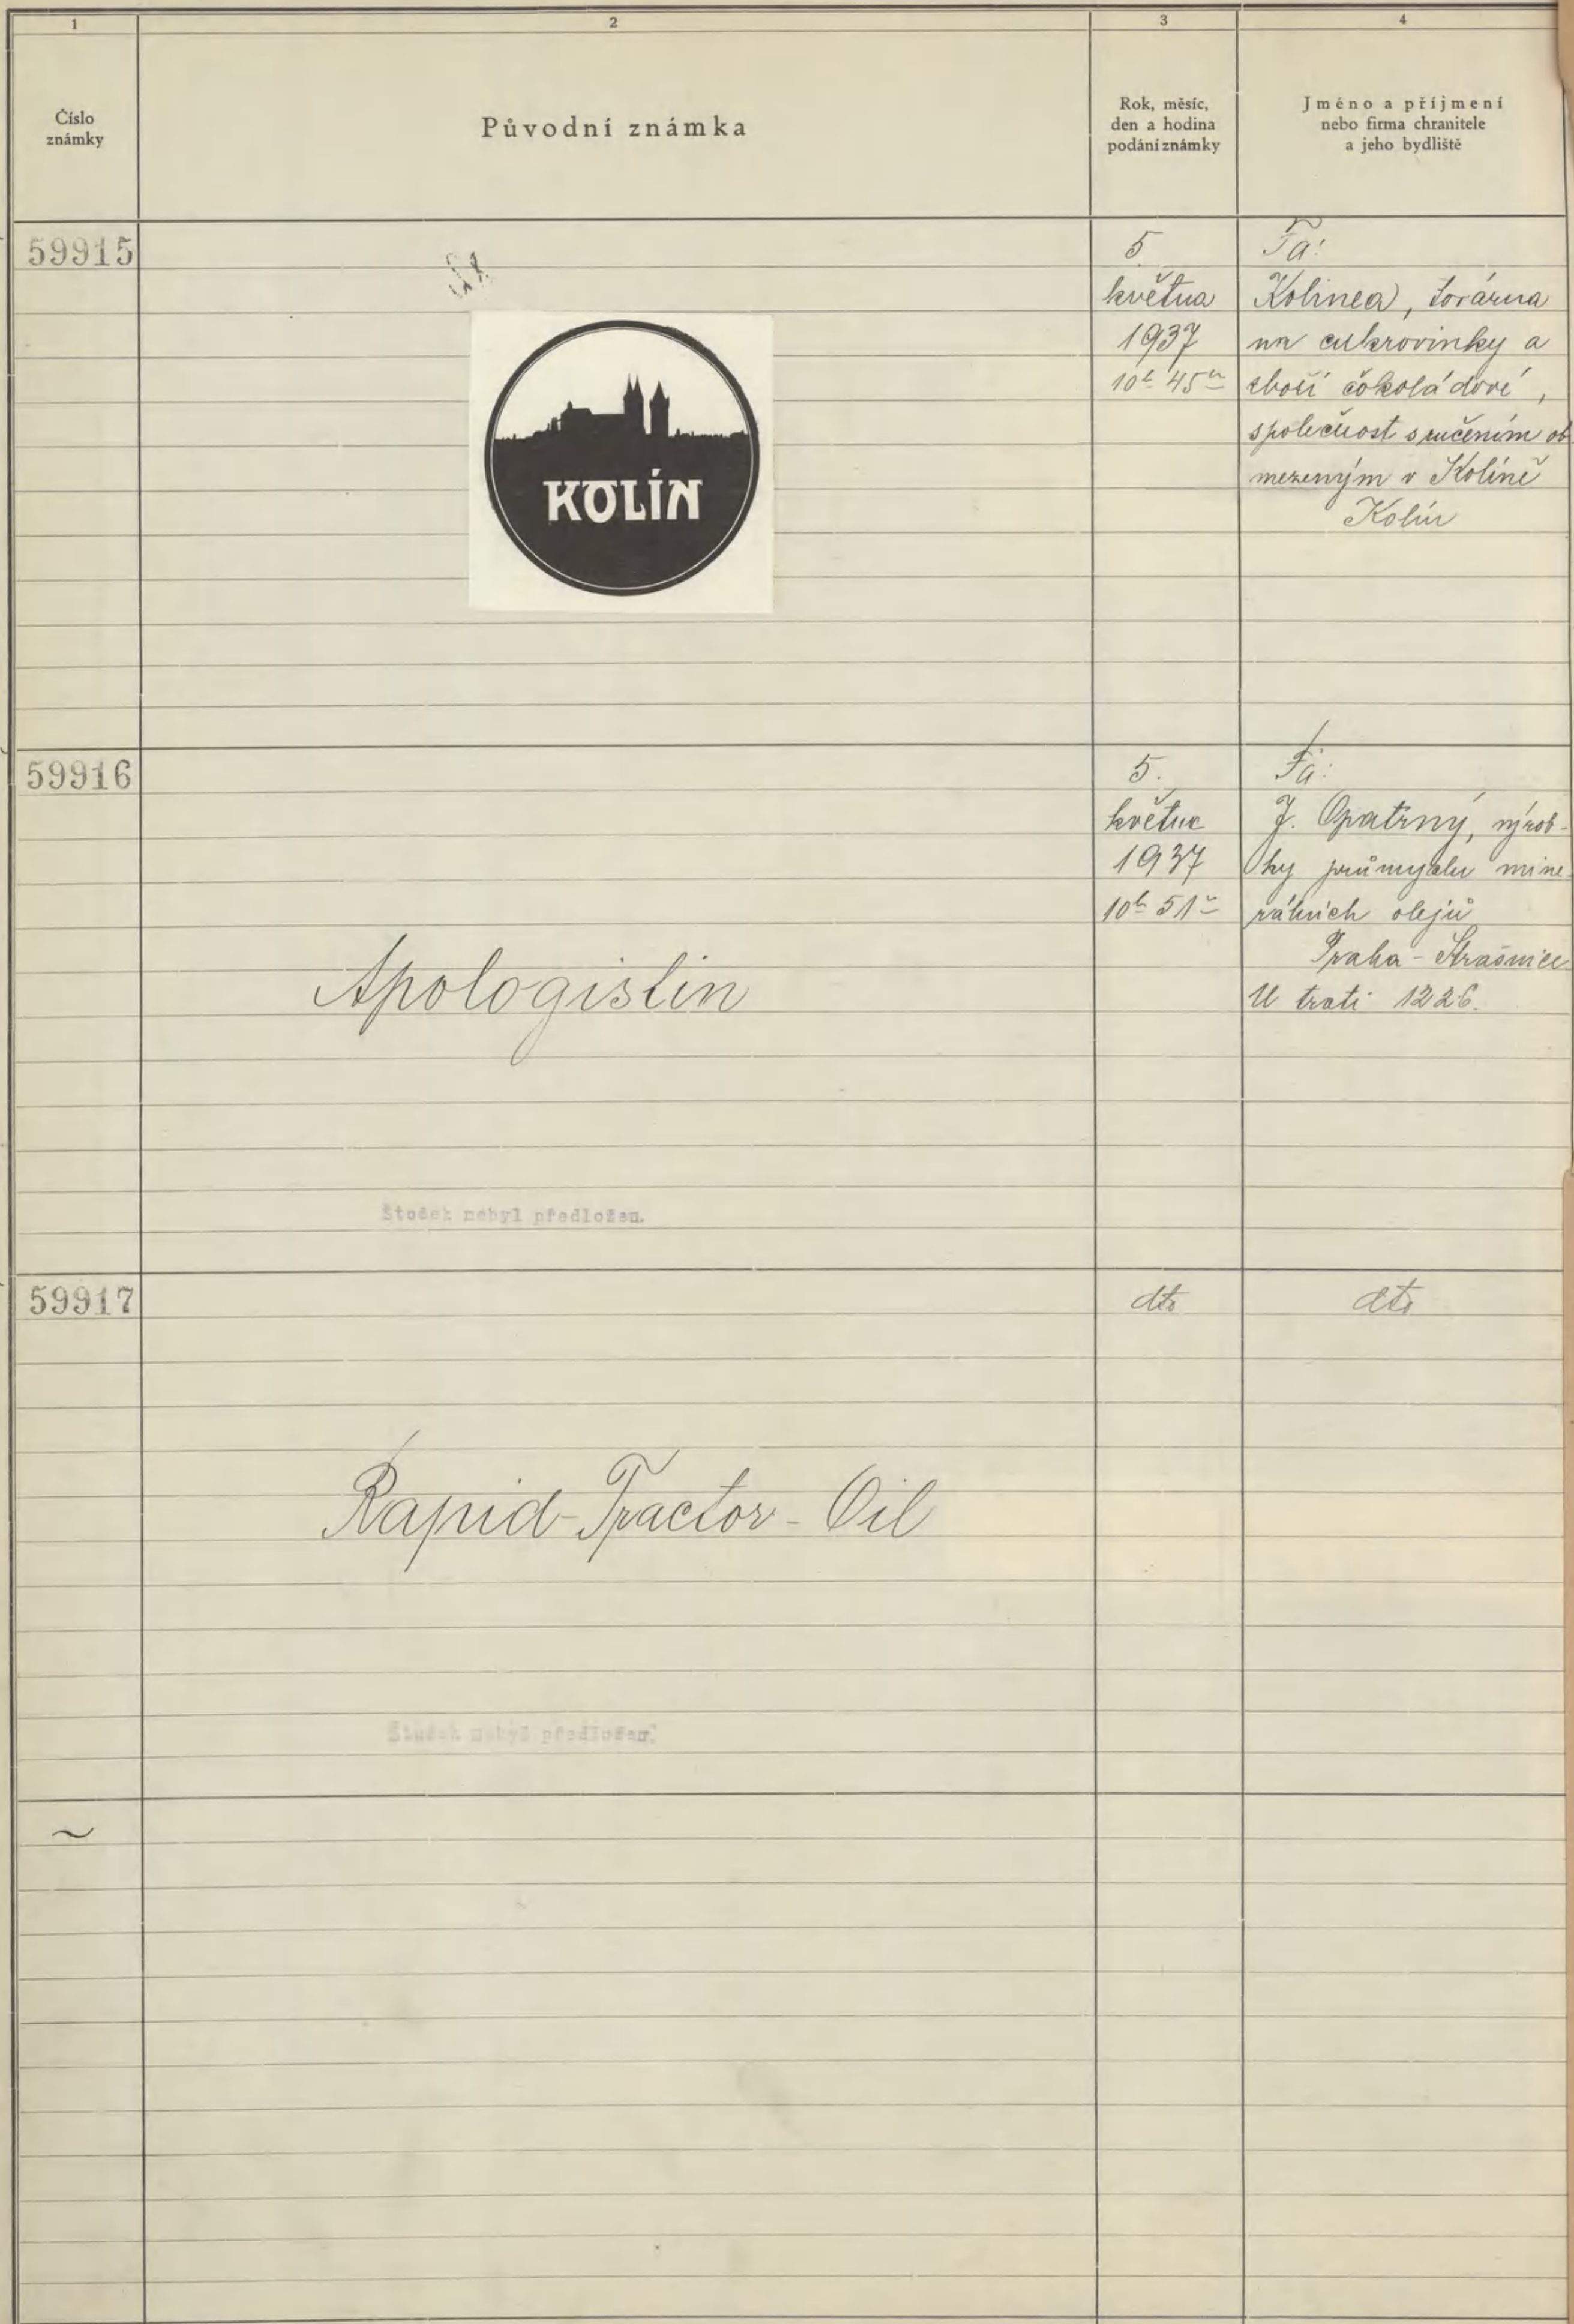 1
2
3
4
Číslo
známky
Původní známka
Rok, měsíc,
den a hodina
podání známky
Jméno a příjmení
nebo firma chranitele
a jeho bydliště
59915
KOLÍN
5
května
1937
10h 45m
Fa:
Kolinea, továrna
na cukrovinky a
zboží čokoládové,
společnost s ručením ob
mezeným v Kolíně
Kolín
59916
Apologistin
Štoček nebyl předložen.
5.
května
1937
10h 51m
Fa:
J. Opatrný, výrob-
ky průmyslu mine-
rálních olejů
Praha - Strašnice
U trati 1226.
59917
Rapid-Tractor-Oil
Štoček nebyl předložen.
dto
dto
~